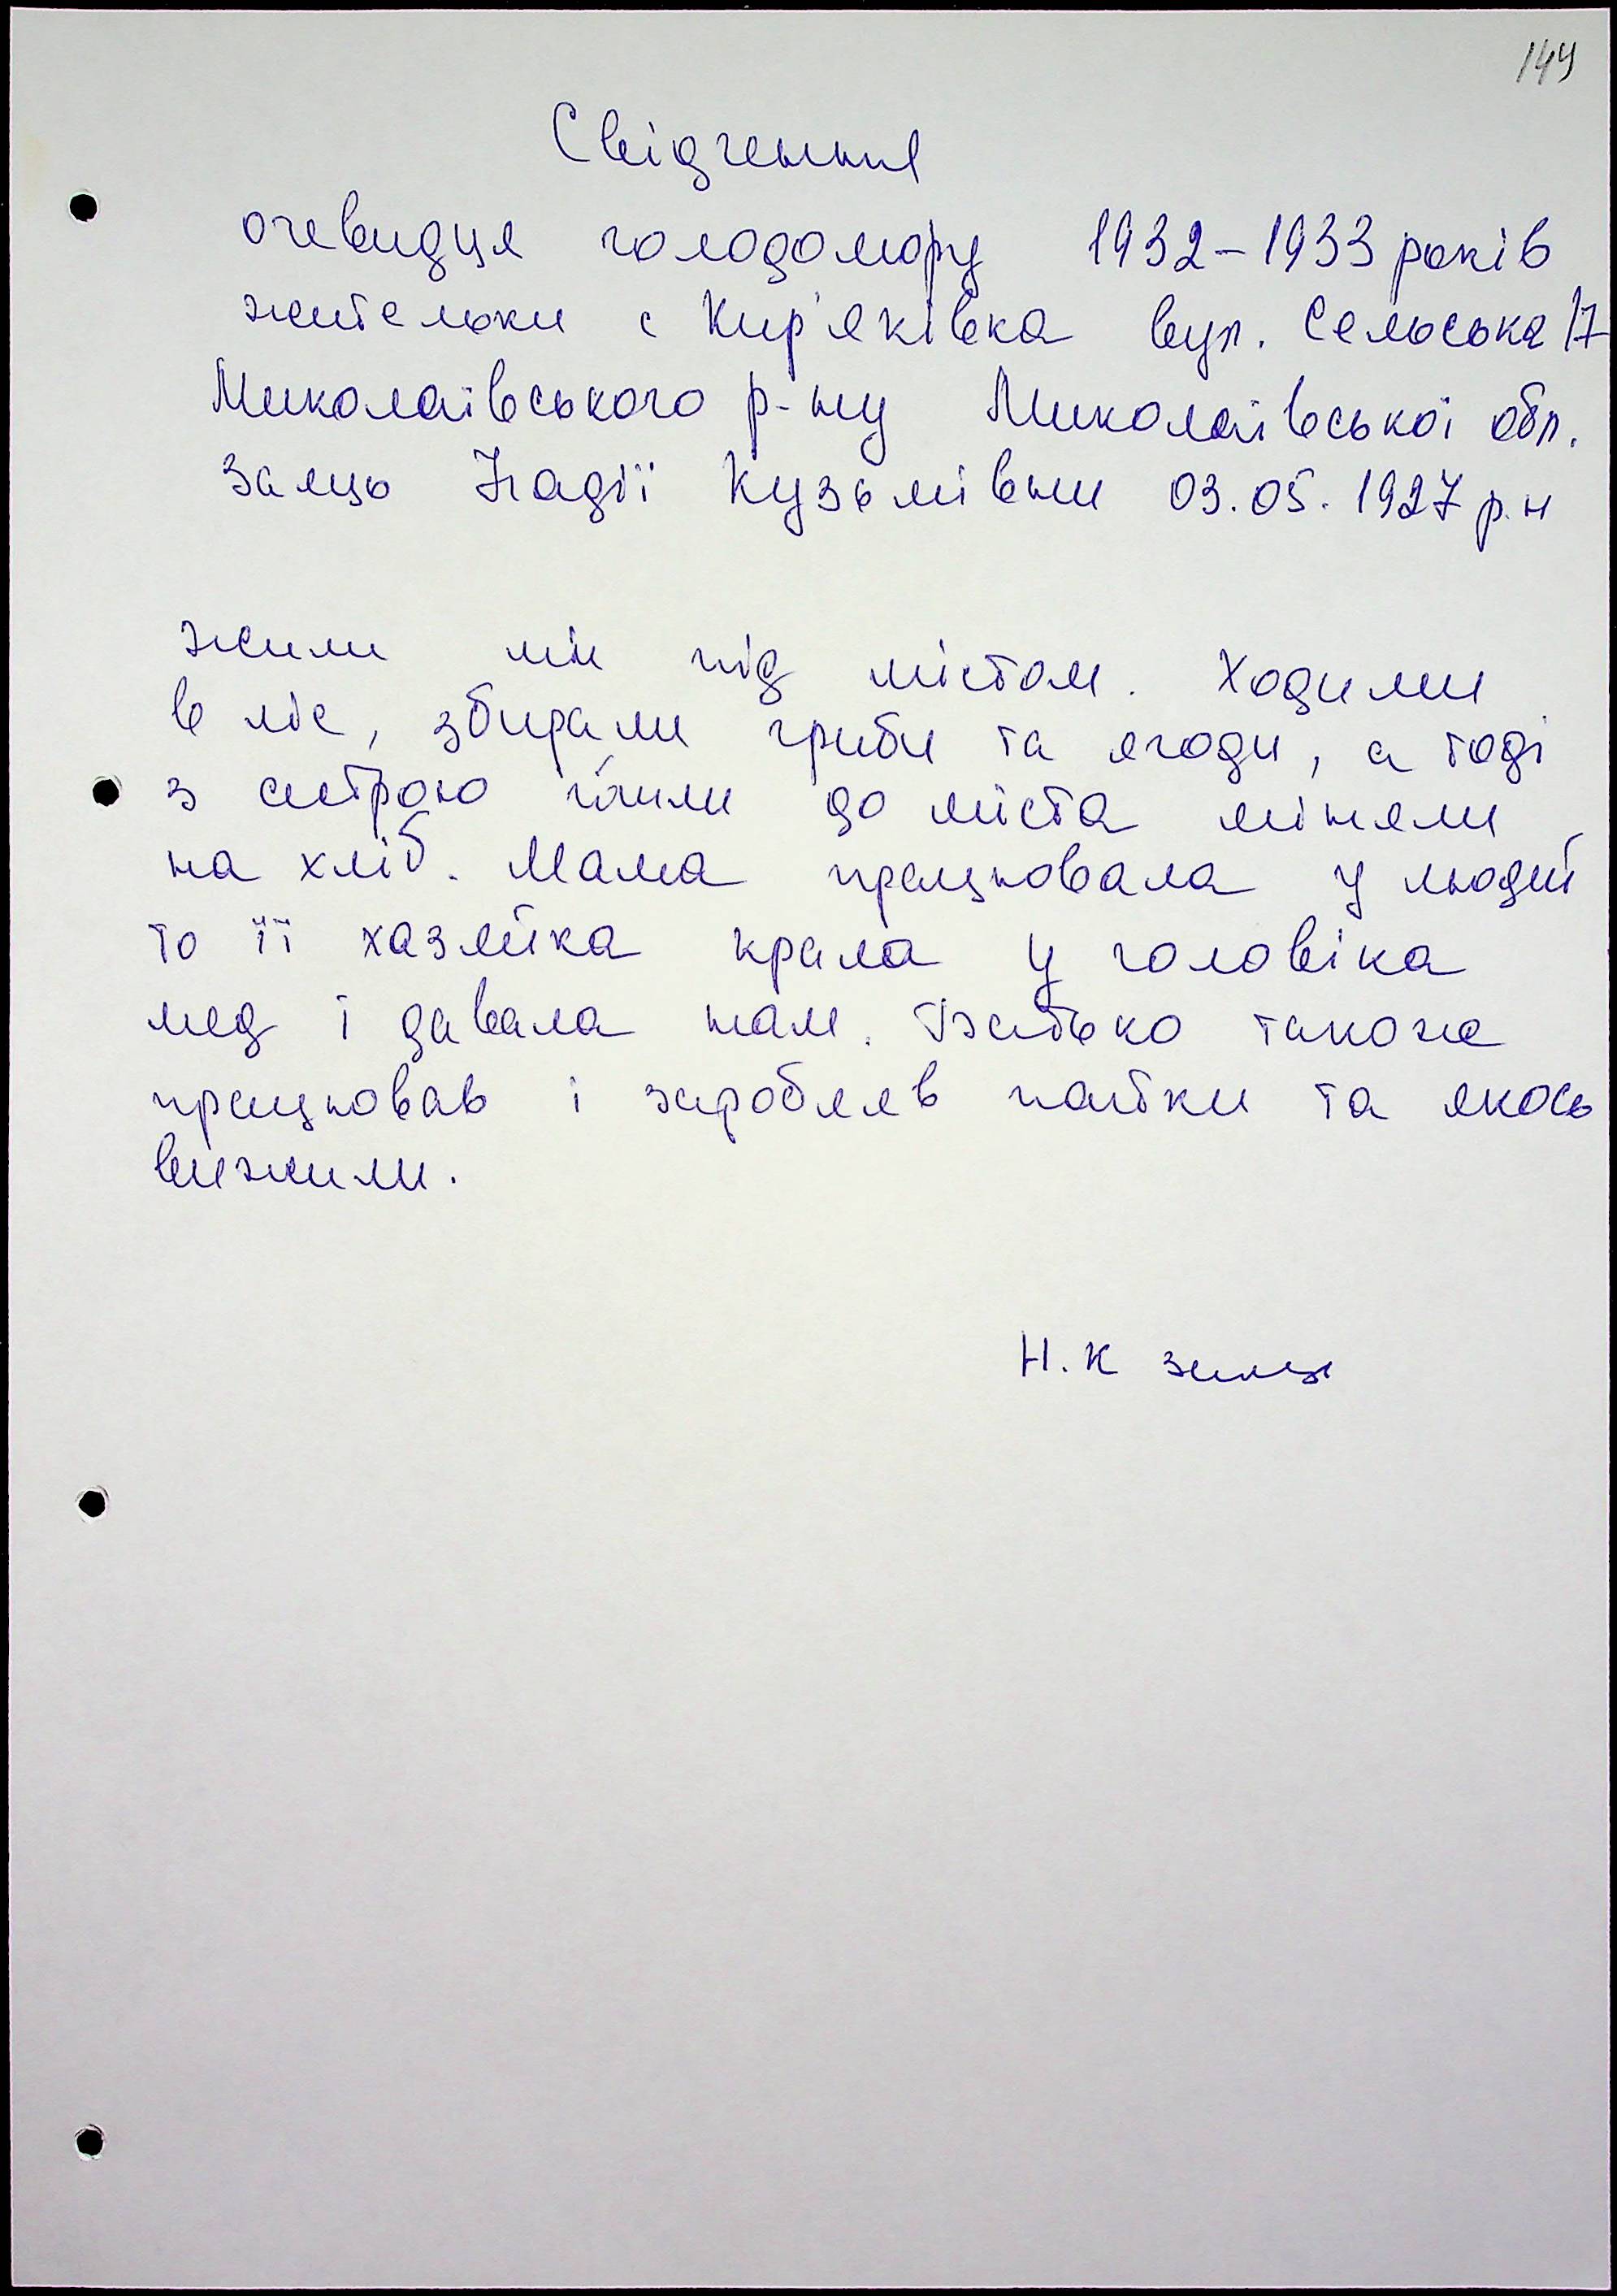 149
Свідчення
очевидця голодомору 1932-1933 років
жительки с Кир'яківка вул. Сельська 17
Миколаївського р-ну Миколаївської обл.
Заяць Надії Кузьмівни 03.05.1927 р.н
жили ми під містом. Ходили
в ліс, збирали гриби та ягоди, а тоді
з сестрою йшли до міста міняли
на хліб. Мама працювала у людей
то її хазяйка крала у чоловіка
мед і давала нам. Батько також
працював і заробляв пайки та якось
вижили.
Н.К